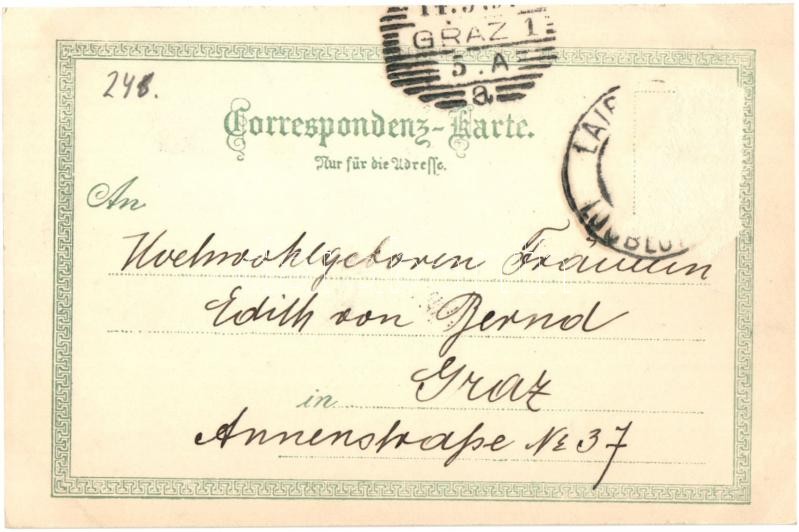 GRAZ 1
5.A
a
248.
Correspondenz-Karte.
Nur für die Adresse.
An
Hochwohlgeboren Fräulein
Edith von Bernd
in Graz
Annenstraße № 37